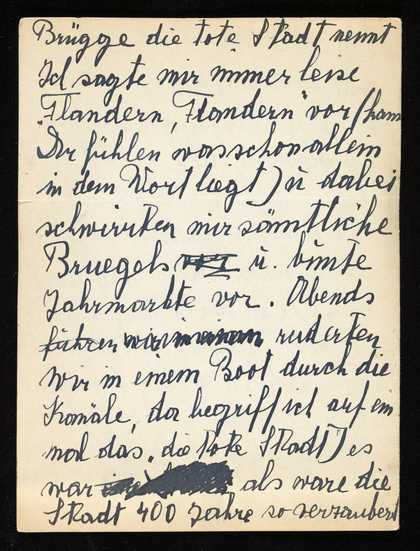 Brügge die tote Stadt nennt
Ich sagte mir immer leise
„Flandern, Flandern" vor (kann
Dir fühlen was schon allein
in dem Wort liegt) u dabei
schwirrten mir sämtliche
Bruegels u. bunte
Jahrmarkte vor. Abends
führen ruderten
wir in einem Boot durch die
Kanäle, da begriff ich auf ein
mal das „die tote Stadt") es
war als wäre die
Stadt 400 Jahre so verzaubert